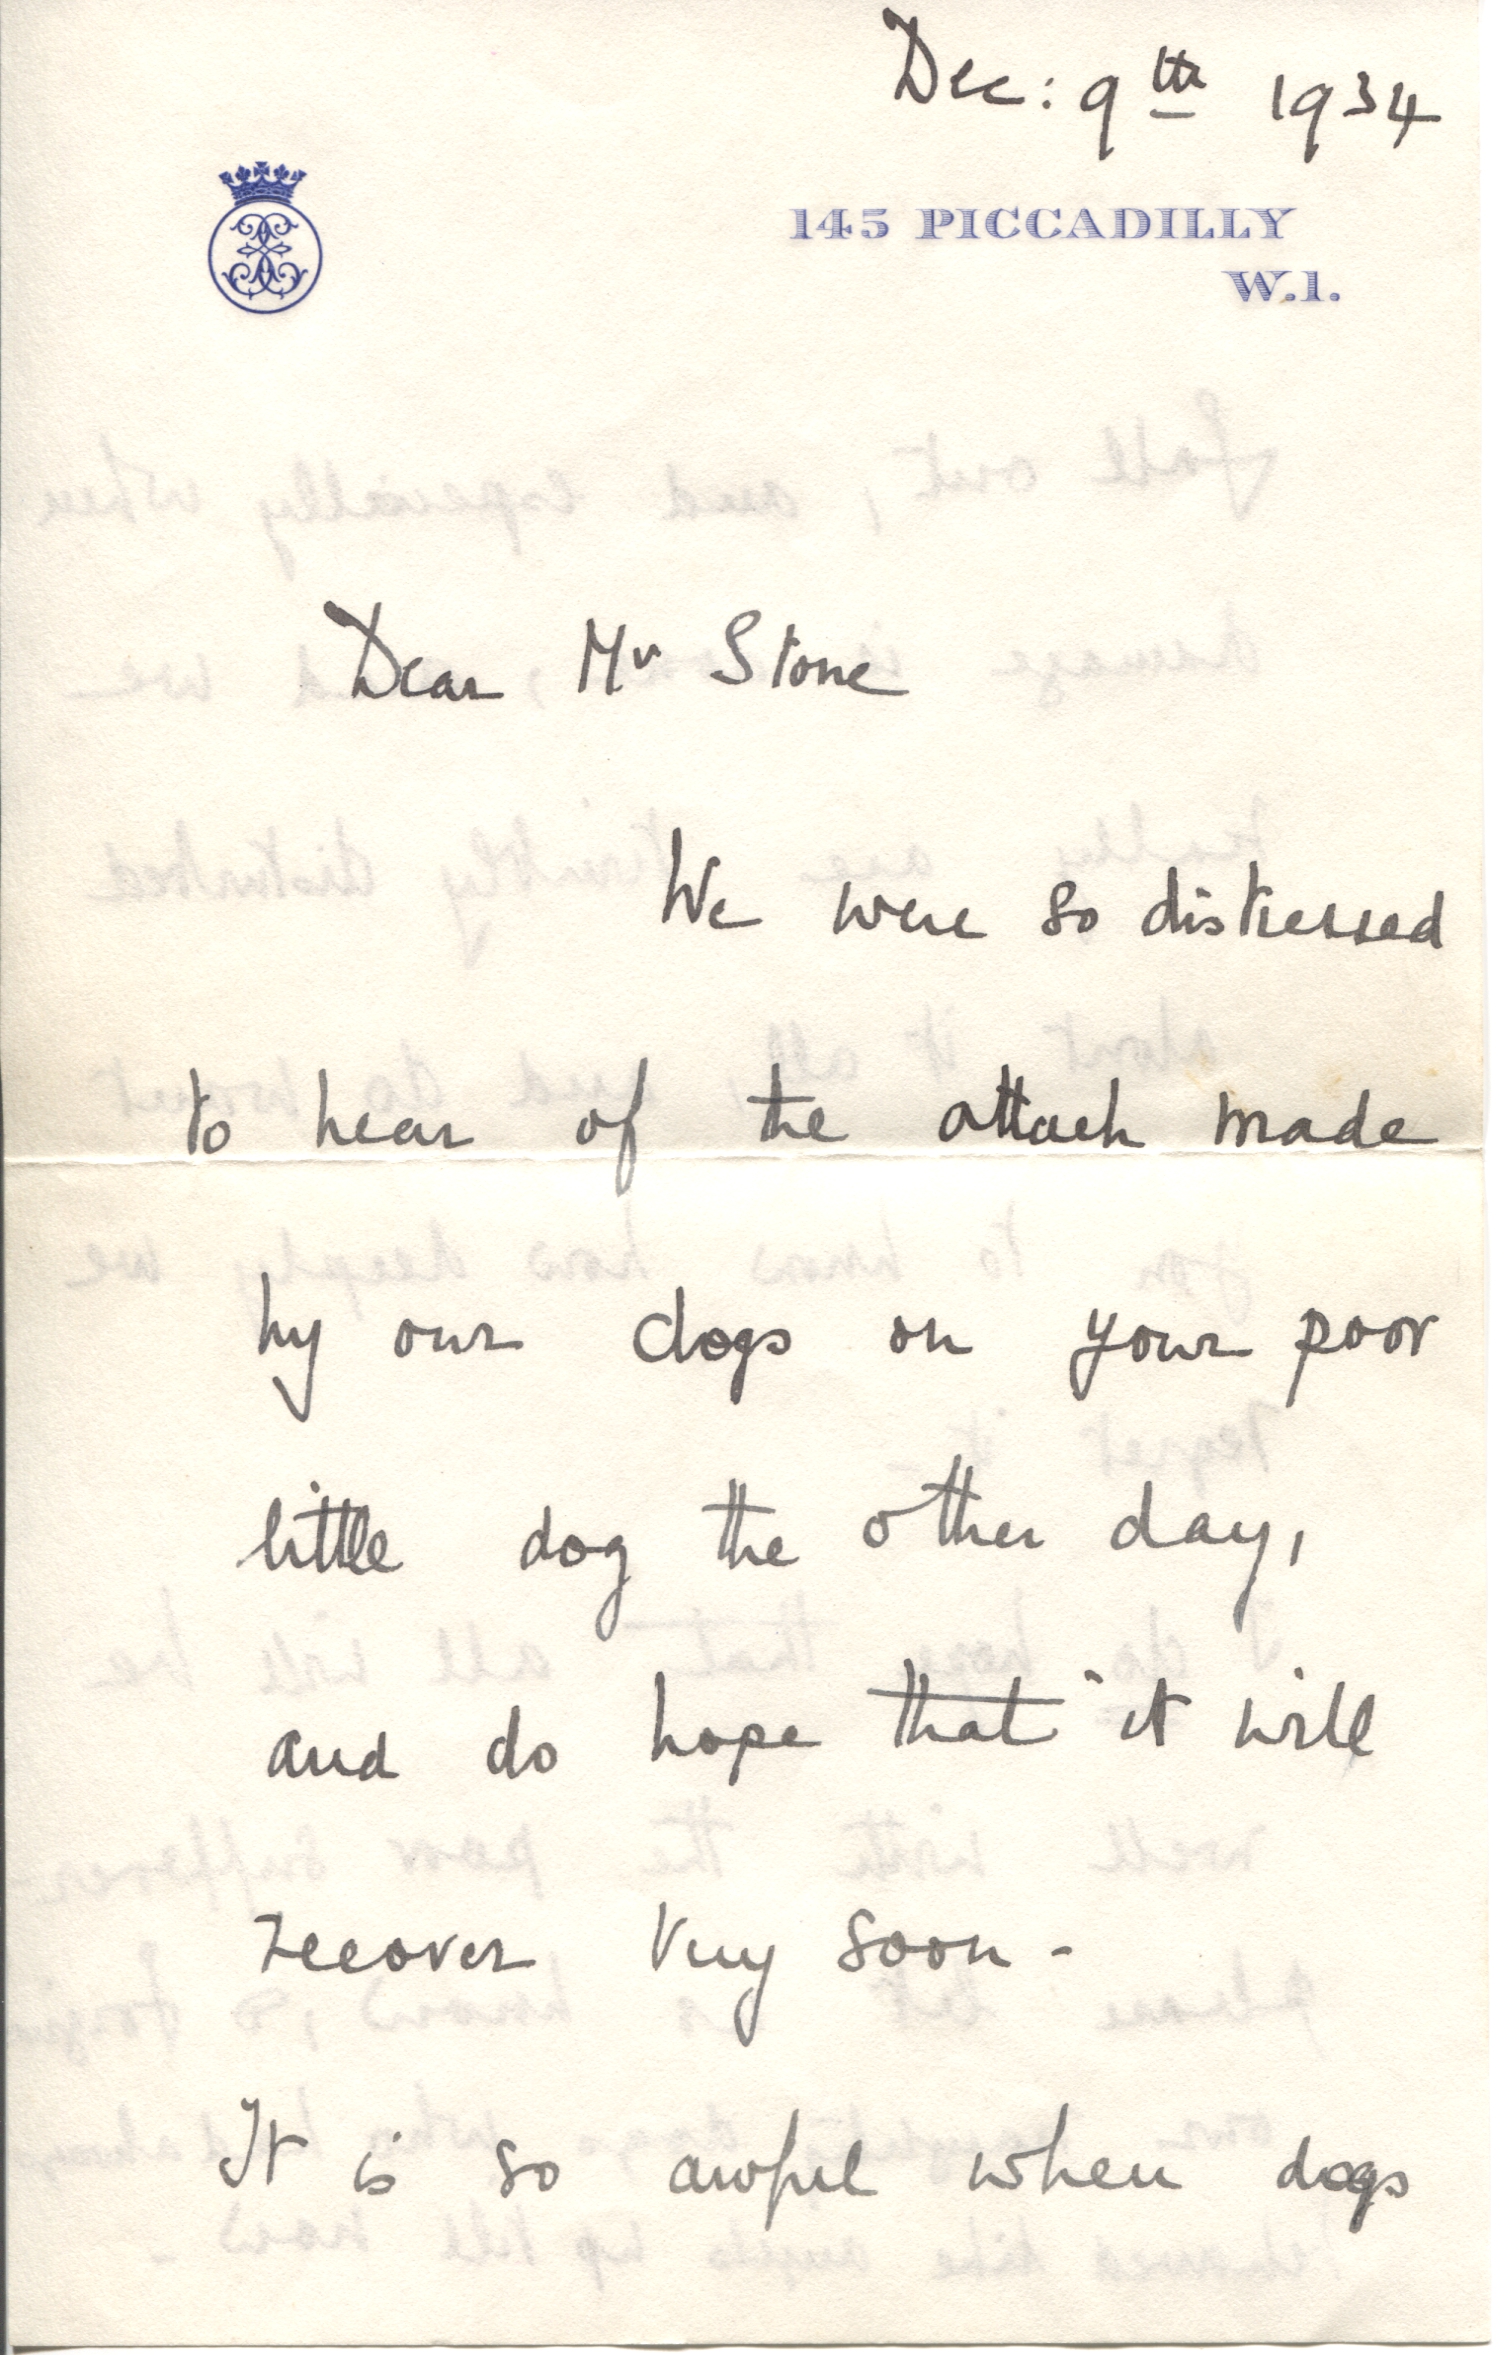 Dec: 9th 1934
145 PICCADILLY
W.1.
Dear Mr Stone
We were so distressed
to hear of the attack made
by our dogs on your poor
little dog the other day,
and do hope that it will
recover very soon -
It is so awful when dogs